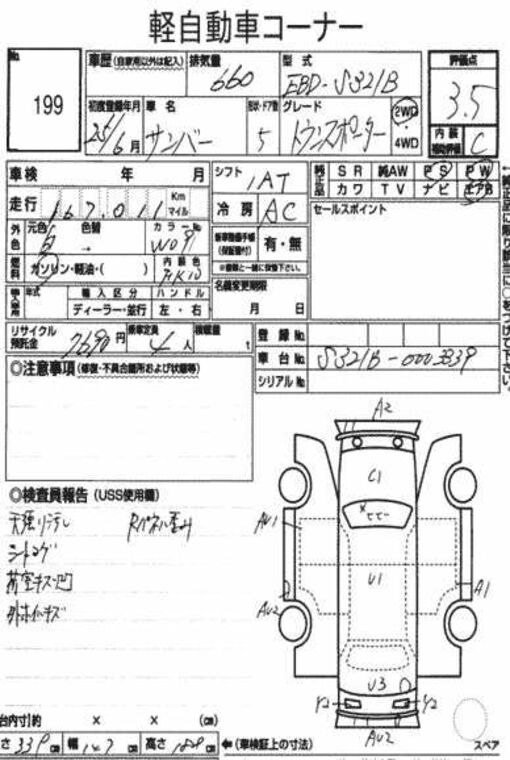 軽自動車コーナー
No. 199
車歴 (自家用以外は記入) 排気量 660 型式 EBD-S321B 評価点 3.5
初度登録年月 25年6月 車名 サンバー 形状・ドア数 5 グレード トランスポーター 2WD・4WD 内装補助評価 C
車検 年 月 シフト IAT 純正品 SR 純AW PS PW
カワ TV ナビ エアB
走行 167,011 Km マイル 冷房 AC セールスポイント
外色 元色 白 色替 → カラーNo. W09 内装色
新車整備手帳(保証書付) 有・無
燃料 ガソリン・軽油・( ) ※書類と一緒に保管下さい。
輸入車用 年式 輸入区分 ハンドル 名義変更期限
ディーラー・並行 左・右 月 日
リサイクル預託金 7690円 乗車定員 4人 積載量 t 登録No.
車台No. S321B-0003839
シリアルNo.
◎注意事項 (修復・不具合箇所および状態等)
◎検査員報告 (USS使用欄)
天張り汚れ Rパネル歪み
シートコゲ
荷室キズ凹
外ホイールキズ
A2
C1
U1
AU1
AU2
A1
U3
Y2
Y2
AU2
スペア
台内寸)約 × × (cm)
さ 339 cm 幅 147 cm 高さ cm ←(車検証上の寸法)